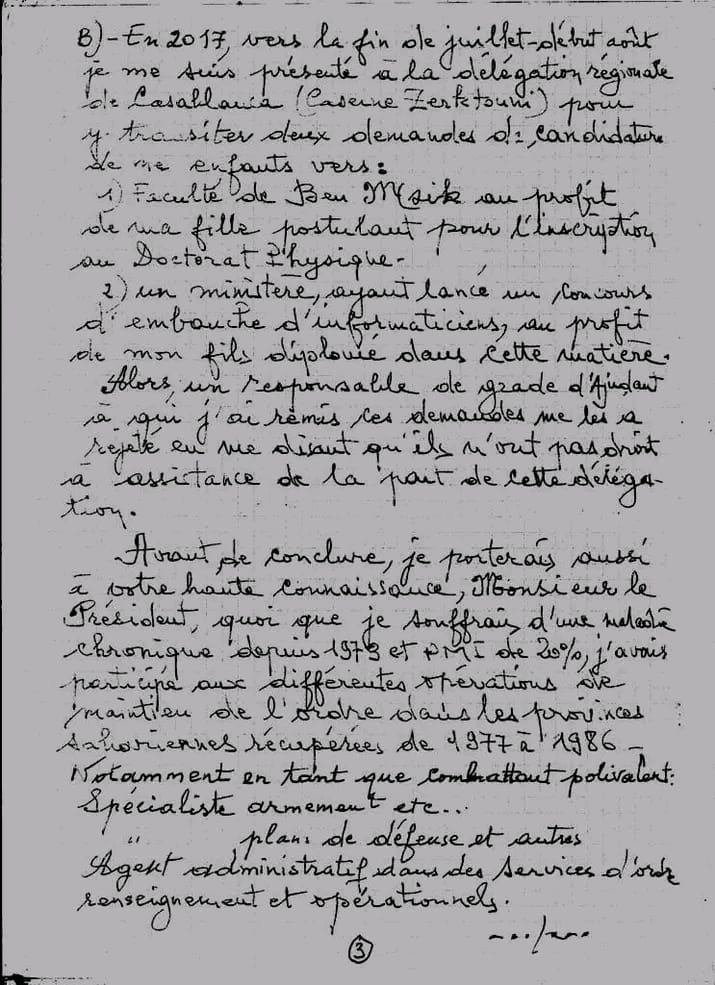 B)-En 2017, vers la fin de juillet-début août
je me suis présenté à la délégation régionale
de Casablanca (Caserne Zerktouni) pour
y transiter deux demandes de candidature
de me enfants vers:
1) Faculté de Ben Msik au profit
de ma fille postulant pour l'inscription
au Doctorat Physique-
2) un ministère, ayant lancé un concours
d'embauche d'informaticiens, au profit
de mon fils diplomé dans cette matière.
Alors, un responsable de grade d'Ajudant
à qui j'ai remis ces demandes me les a
rejeté en me disant qu'ils n'ont pas droit
à assistance de la part de cette déléga-
tion.
Avant de conclure, je porterais aussi
à votre haute connaissance, Monsieur le
Président, quoi que je souffrais d'une maladie
chronique depuis 1973 et PMI de 20%, j'avais
participé aux différentes opérations de
maintien de l'ordre dans les provinces
sahariennes récupérées de 1977 à 1986-
Notamment en tant que combattant polivalent:
Spécialiste armement etc...
" plans de défense et autres
Agent administratif dans des services d'ordre
renseignement et opérationnels.
.../...
3